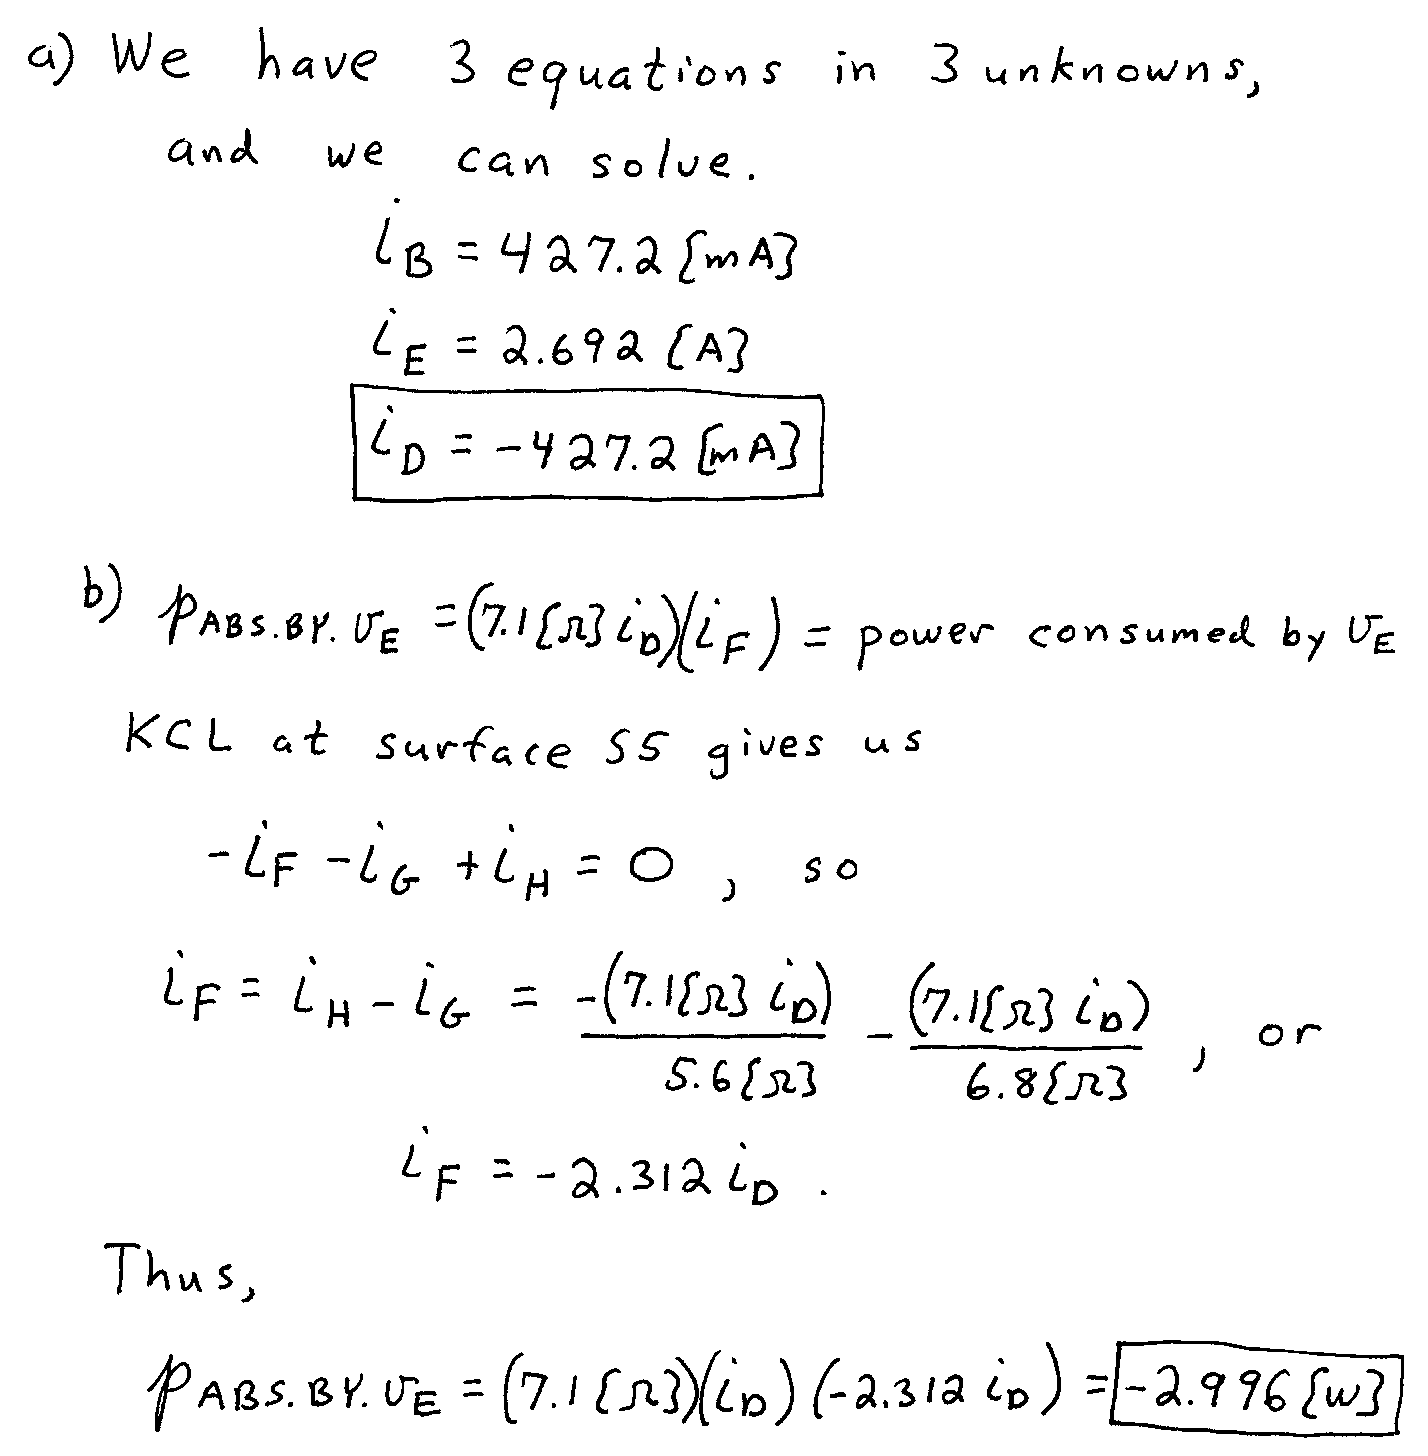 a) We have 3 equations in 3 unknowns,
and we can solve.
i_B = 427.2 [mA]
i_E = 2.692 [A]
i_D = -427.2 [mA]
b) p_ABS.BY.v_E = (7.1[Ω] i_D)(i_F) = power consumed by v_E
KCL at surface S5 gives us
-i_F - i_G + i_H = 0, so
i_F = i_H - i_G = -(7.1[Ω] i_D)/5.6[Ω] - (7.1[Ω] i_D)/6.8[Ω], or
i_F = -2.312 i_D.
Thus,
p_ABS.BY.v_E = (7.1[Ω])(i_D)(-2.312 i_D) = -2.996[W]